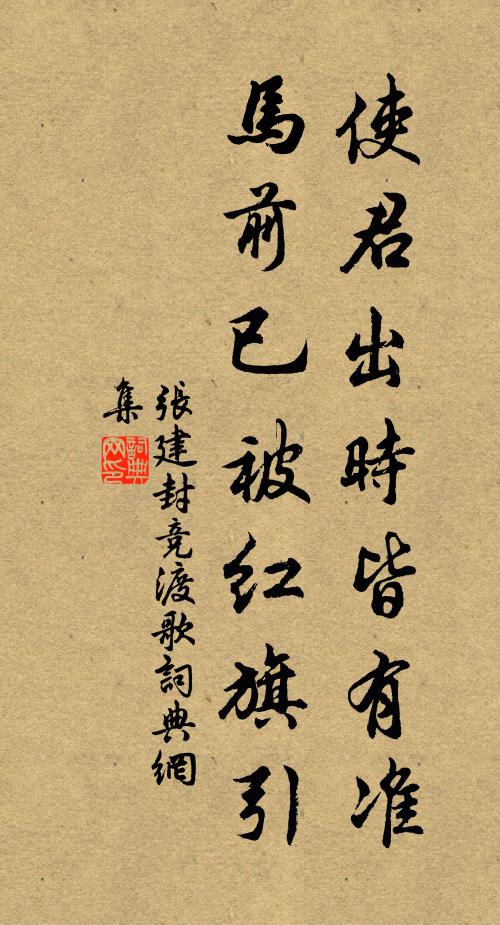 使君出時皆有准
馬前已被红旗引
張建封竞渡歌詞典網
集
詞典
网印